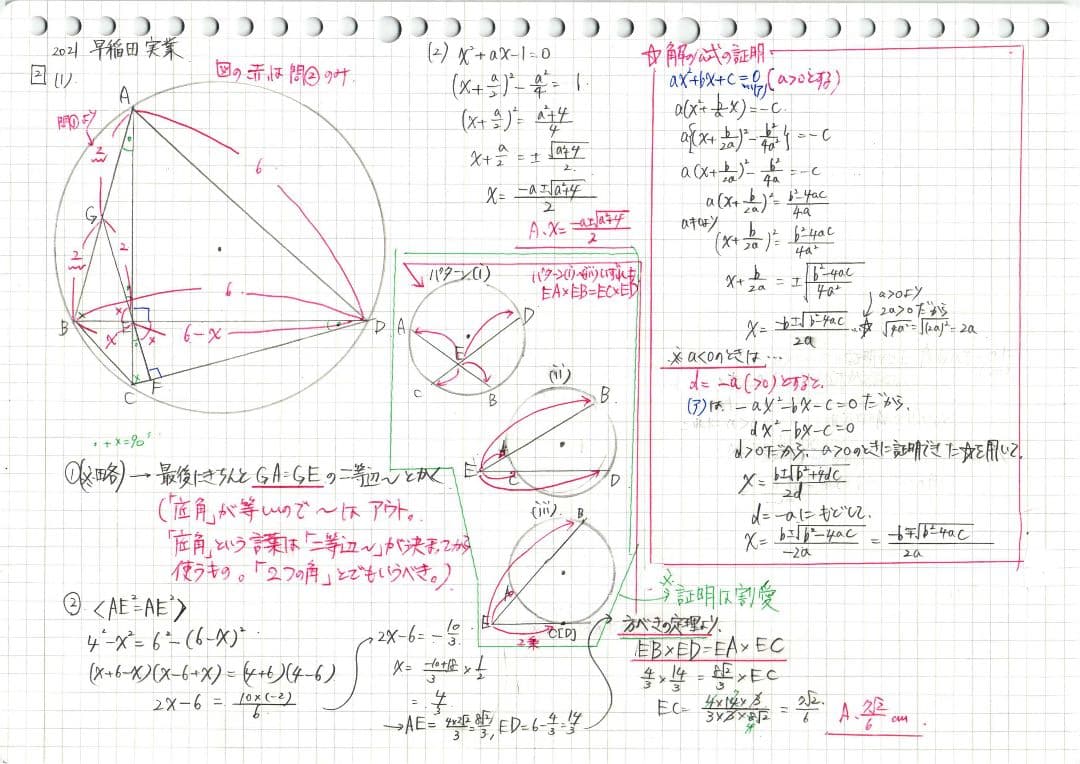 2021 早稲田実業
2 (1)
図の赤は問②のみ
問①より
A
G
B
E
D
C
F
2
2
2
6
6
x
x
6-x
・+×=90°
①(※略) → 最後にきちんとGA=GEの二等辺〜とかく
(「底角」が等しいので〜はアウト。
「底角」という言葉は「二等辺〜」が決まってから
使うもの。「2つの角」とでもいうべき。)
② <AE²=AE²>
4²-x²=6²-(6-x)²
(x+6-x)(x-6+x)=(4+6)(4-6)
2x-6=10×(-2)/6
2x-6=-10/3
x=(-10+18)/3×1/2
=4/3
→AE=4×2√2/3=8√2/3, ED=6-4/3=14/3
(2) x²+ax-1=0
(x+a/2)²-a²/4=1
(x+a/2)²=(a²+4)/4
x+a/2=±√(a²+4)/2
x=(-a±√(a²+4))/2
A. x=(-a±√(a²+4))/2
パターン(i)
パターン(i)〜(iii)いずれも
EA×EB=EC×ED
A
D
E
C
B
(ii)
B
A
E
C
D
(iii)
B
A
E
C[D]
2乗
※証明は割愛
方べきの定理より、
EB×ED=EA×EC
4/3×14/3=8√2/3×EC
EC=4×14×3/3×3×8√2=7√2/6
A. 7√2/6 cm
☆解の公式の証明
ax²+bx+c=0 (a>0とする)
(ア)
a(x²+b/a x)=-c
a{(x+b/2a)²-b²/4a²}=-c
a(x+b/2a)²-b²/4a=-c
a(x+b/2a)²=(b²-4ac)/4a
a≠0より
(x+b/2a)²=(b²-4ac)/4a²
x+b/2a=±√((b²-4ac)/4a²)
a>0より
2a>0だから
√4a²=√(2a)²=2a
x=(-b±√(b²-4ac))/2a …☆
※a<0のときは…
d=-a(>0)とすると、
(ア)は、-ax²-bx-c=0だから、
dx²-bx-c=0
d>0だから、a>0のときに証明できた☆を用いて、
x=(b±√(b²+4dc))/2d
d=-aにもどして、
x=(b±√(b²-4ac))/-2a=(-b∓√(b²-4ac))/2a